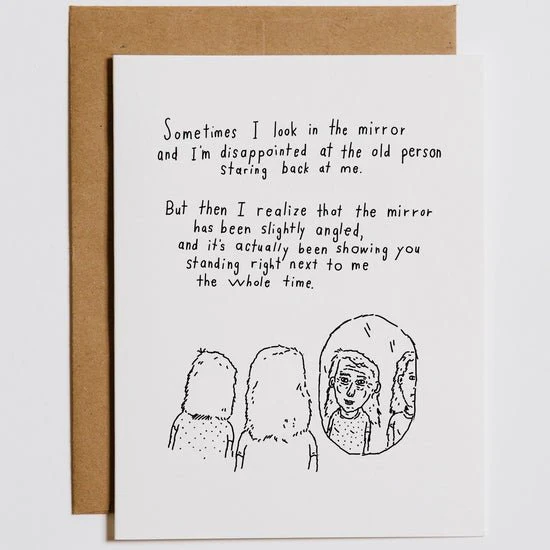 Sometimes I look in the mirror
and I'm disappointed at the old person
staring back at me.
But then I realize that the mirror
has been slightly angled,
and it's actually been showing you
standing right next to me
the whole time.